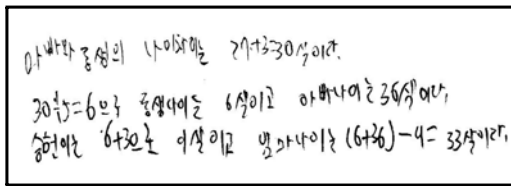 아빠와 동생의 나이차이는 27+3=30살이다.
30÷5=6으로 동생나이는 6살이고 아빠나이는 36살이다.
승현이는 6+3으로 9살이고 엄마나이는 (6+36)-9=33살이다.